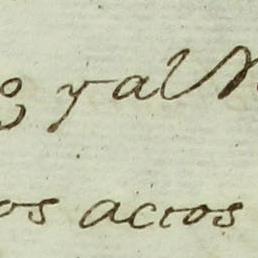 y al
os actos